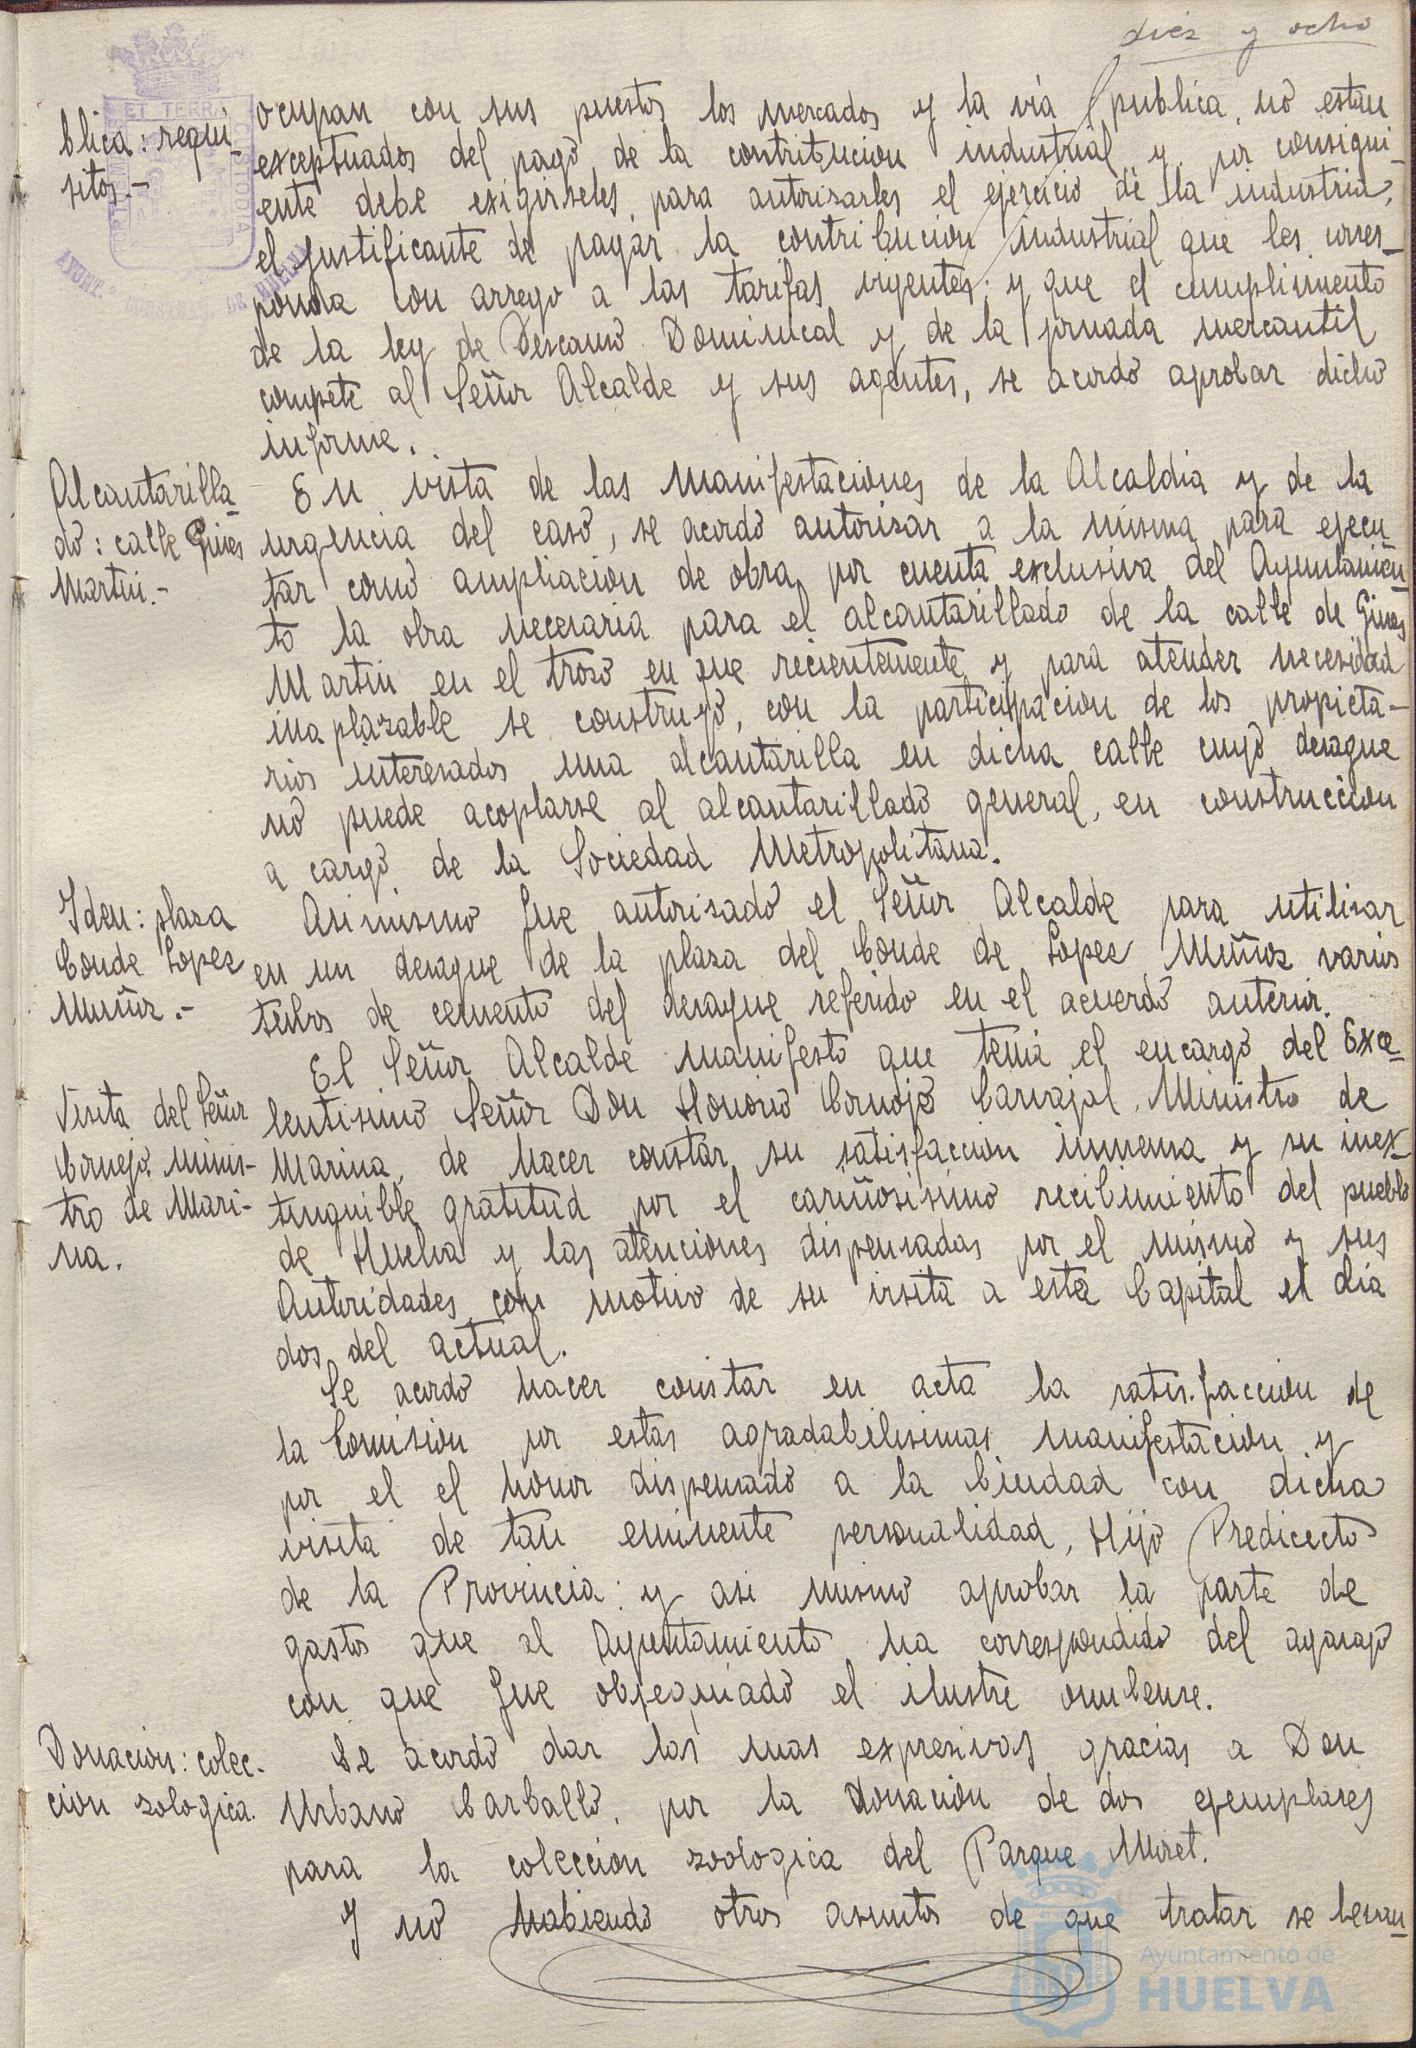 diez y ocho
blica: requi-
sitos.-
ocupan con sus puestos los mercados y la vía publica, no estan
exceptuados del pago de la contribucion industrial y por consigui-
ente debe exigirseles, para autorizarles el ejercicio de la industria,
el justificante de pagar la contribucion industrial que les corres-
ponda con arreyo a las tarifas vigentes; y que el cumplimento
de la ley de Descanso Dominical y de la jornada mercantil
compete al Señor Alcalde y sus agentes, se acordo aprobar dicho
informe.
Alcantarilla-
do: calle Gines
Martin.-
En vista de las manifestaciones de la Alcaldia y de la
urgencia del caso, se acordo autorizar a la misma para ejecu
tar como ampliacion de obra por cuenta exclusiva del Ayuntamien-
to la obra necesaria para el alcantarillado de la calle de Gines
Martin en el trozo en que recientemente y para atender necesidad
inaplazable se construyó, con la participacion de los propieta-
rios interesados una alcantarilla en dicha calle cuyo desague
no puede acoplarse al alcantarillado general, en construccion
a cargo de la Sociedad Metropolitana.
Idem: plaza
Conde Lopez
Muñoz.-
Asi mismo fue autorizado el Señor Alcalde para utilizar
en un desague de la plaza del Conde de Lopez Muñoz varios
tubos de cemento del desague referido en el acuerdo anterior.
Visita del Señor
Cornejo, Minis-
tro de Mari-
na.
El Señor Alcalde manifesto que tenia el encargo del Exce-
lentisimo Señor Don Honorio Cornejo Carvajal, Ministro de
Marina, de hacer constar su satisfaccion inmensa y su inex-
tinguible gratitud por el cariñosisimo recibimiento del pueblo
de Huelva y las atenciones dispensadas por el mismo y sus
Autoridades, con motivo de su visita a esta Capital el dia
dos del actual.
Se acordo hacer constar en acta la satisfaccion de
la Comision por estas agradabilisimas manifestacion y
por el el honor dispensado a la Ciudad con dicha
visita de tan eminente personalidad, Hijo Predicecto
de la Provincia: y asi mismo aprobar la parte de
gastos que al Ayuntamiento ha correspondido del agasajo
con que fue obsequiado el ilustre onubense.
Donacion: colec-
cion zologica.
Se acordo dar las mas expresivas gracias a Don
Urbano Carballo, por la donacion de dos ejemplares
para la coleccion zoologica del Parque Moret.
Y no habiendo otros asuntos de que tratar se levan-
Ayuntamiento de
HUELVA